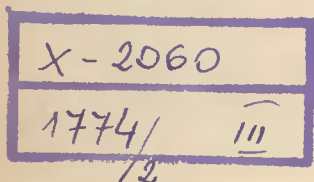 X-2060
1774/2 III